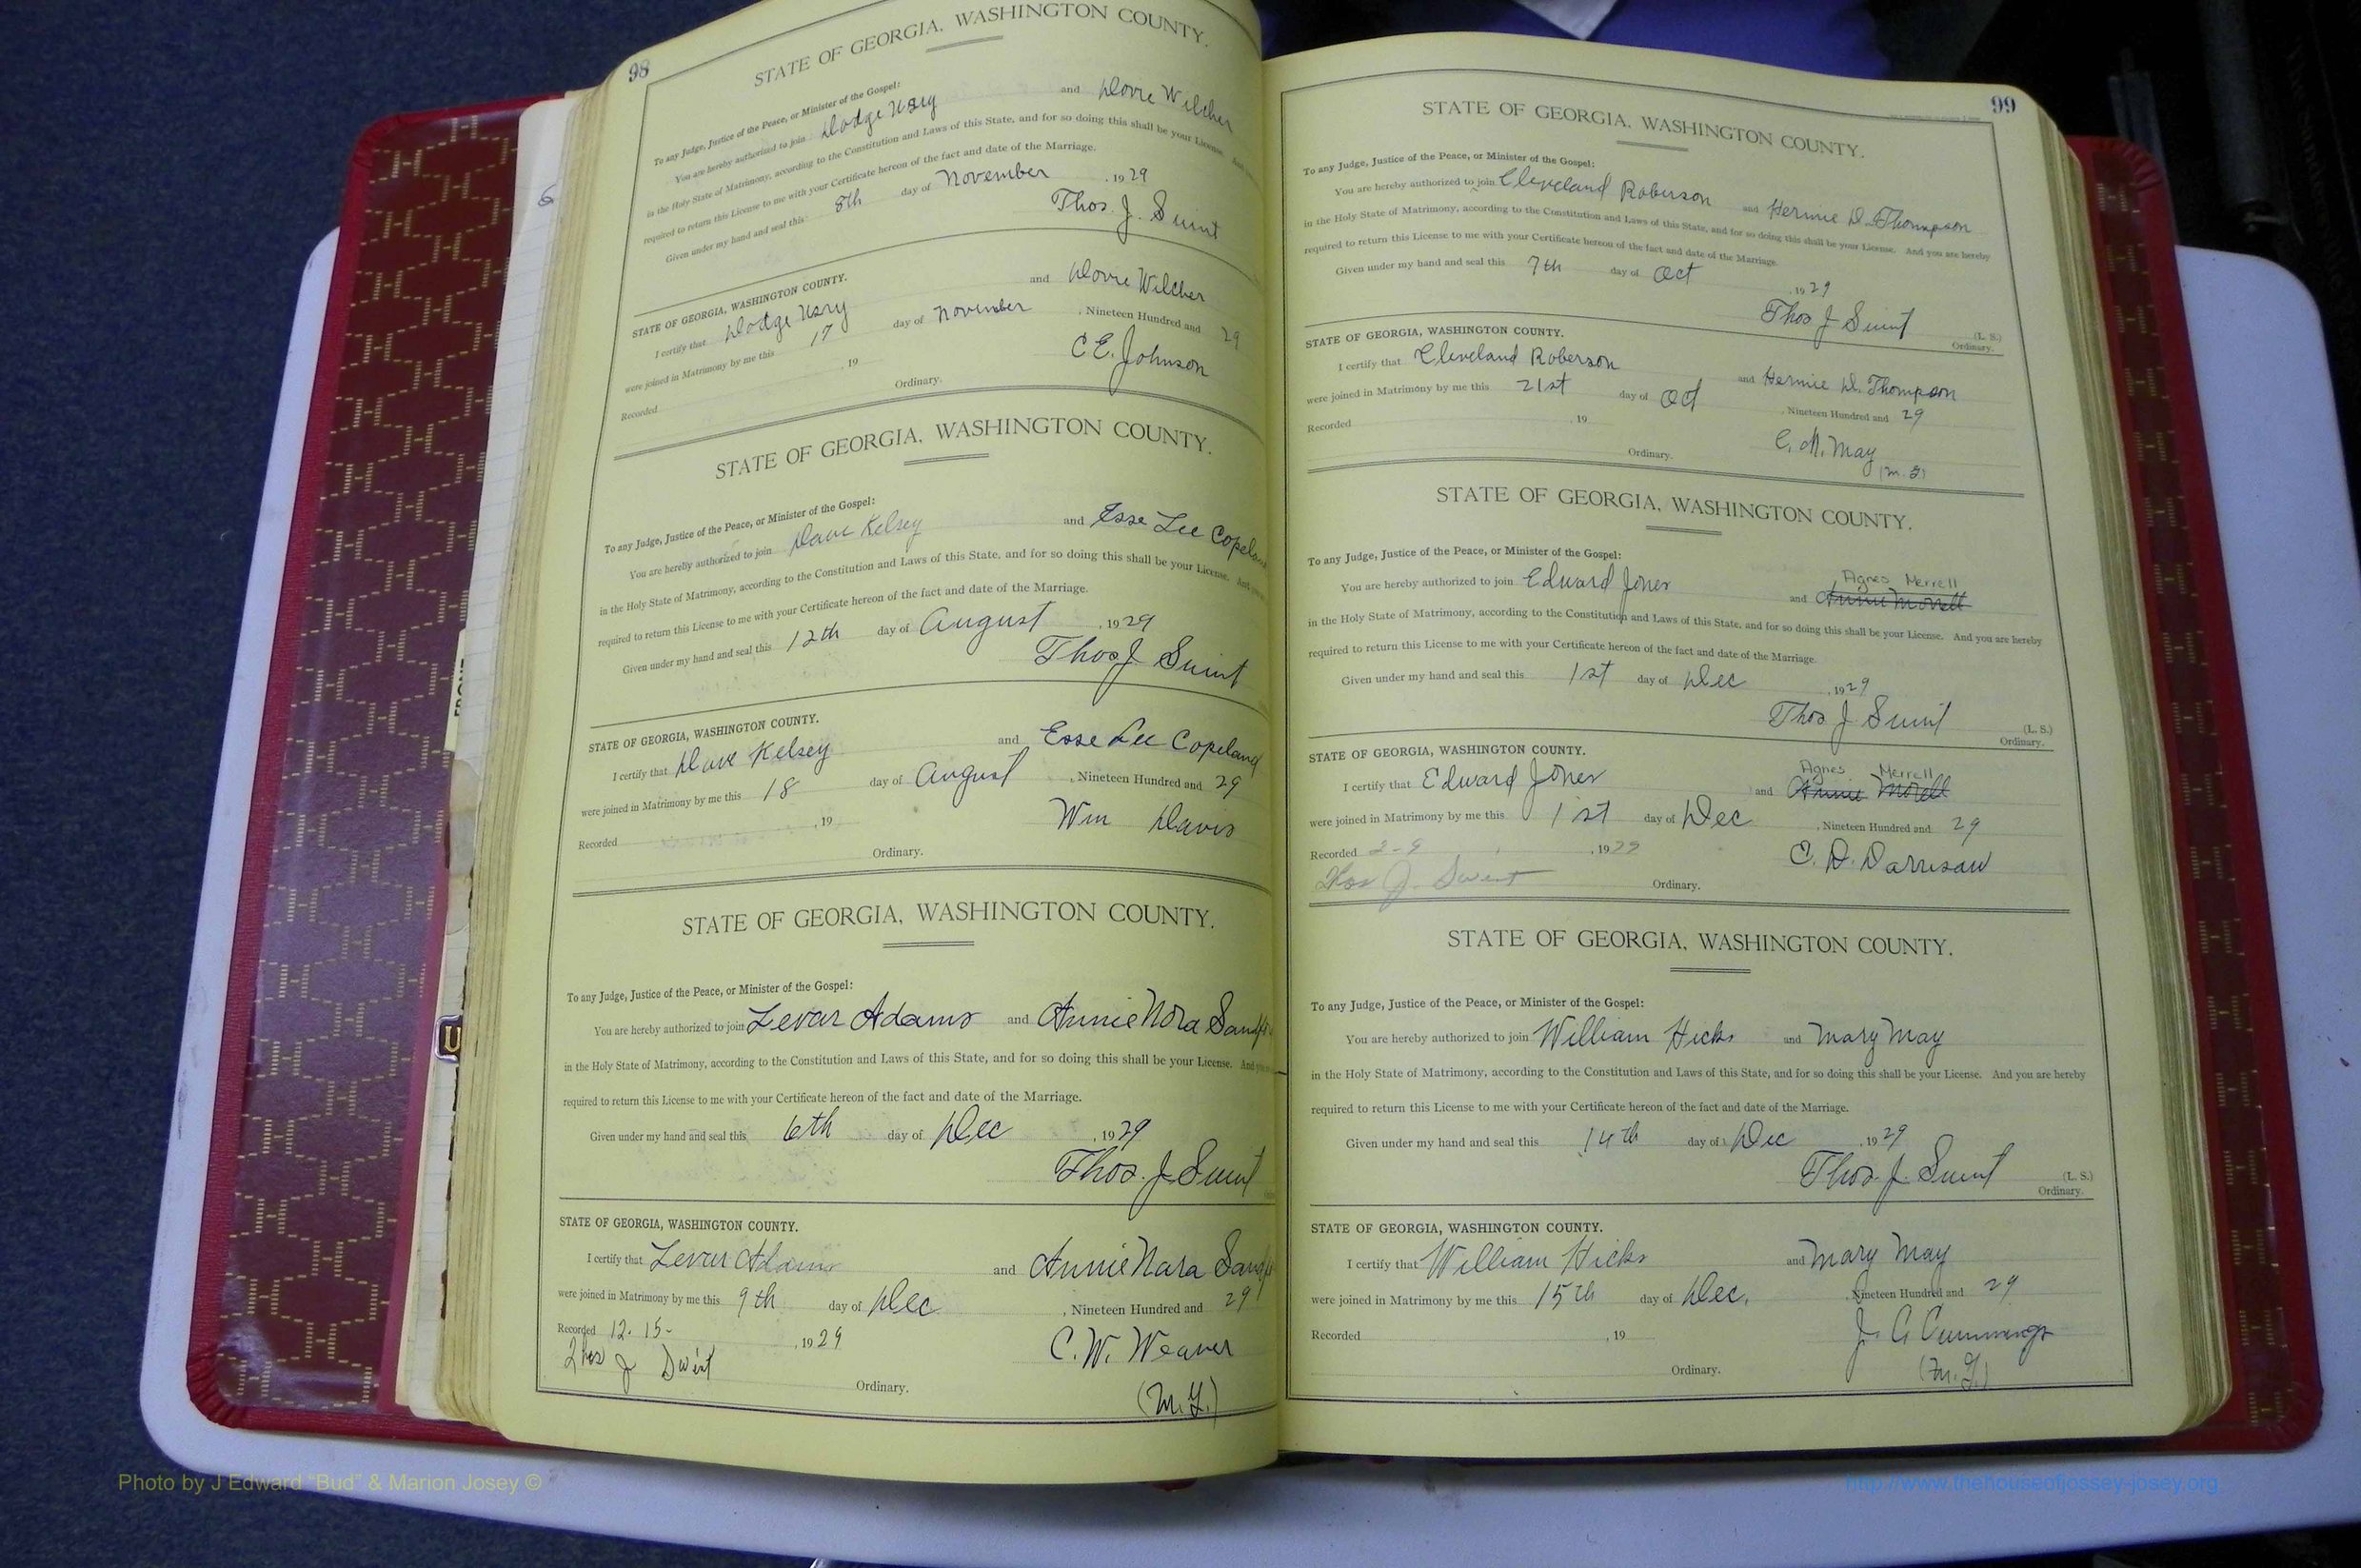 98
STATE OF GEORGIA, WASHINGTON COUNTY.
To any Judge, Justice of the Peace, or Minister of the Gospel:
You are hereby authorized to join Dodge Usry and Dovie Wilcher
in the Holy State of Matrimony, according to the Constitution and Laws of this State, and for so doing this shall be your License. And
required to return this License to me with your Certificate hereon of the fact and date of the Marriage.
Given under my hand and seal this 8th day of November, 1929
Thos. J. Swint
STATE OF GEORGIA, WASHINGTON COUNTY.
I certify that Dodge Usry and Dovie Wilcher
were joined in Matrimony by me this 17 day of November, Nineteen Hundred and 29
Recorded , 19 C. E. Johnson
Ordinary.
STATE OF GEORGIA, WASHINGTON COUNTY.
To any Judge, Justice of the Peace, or Minister of the Gospel:
You are hereby authorized to join Dave Kelsey and Esse Lee Copeland
in the Holy State of Matrimony, according to the Constitution and Laws of this State, and for so doing this shall be your License. And
required to return this License to me with your Certificate hereon of the fact and date of the Marriage.
Given under my hand and seal this 12th day of August, 1929
Thos J Swint
STATE OF GEORGIA, WASHINGTON COUNTY.
I certify that Dave Kelsey and Esse Lee Copeland
were joined in Matrimony by me this 18 day of August, Nineteen Hundred and 29
Recorded , 19 Wm Davis
Ordinary.
STATE OF GEORGIA, WASHINGTON COUNTY.
To any Judge, Justice of the Peace, or Minister of the Gospel:
You are hereby authorized to join Levar Adams and Annie Nora
in the Holy State of Matrimony, according to the Constitution and Laws of this State, and for so doing this shall be your License. And
required to return this License to me with your Certificate hereon of the fact and date of the Marriage.
Given under my hand and seal this 6th day of Dec, 1929
Thos. J. Swint
STATE OF GEORGIA, WASHINGTON COUNTY.
I certify that Levar Adams and Annie Nara
were joined in Matrimony by me this 9th day of Dec, Nineteen Hundred and 29
Recorded 12-15-, 1929 C. W. Weaver
Thos J Swint Ordinary. (M.G.)
99
STATE OF GEORGIA, WASHINGTON COUNTY.
To any Judge, Justice of the Peace, or Minister of the Gospel:
You are hereby authorized to join Cleveland Roberson and Hermie D. Thompson
in the Holy State of Matrimony, according to the Constitution and Laws of this State, and for so doing this shall be your License. And you are hereby
required to return this License to me with your Certificate hereon of the fact and date of the Marriage.
Given under my hand and seal this 7th day of Oct, 1929
Thos J Swint (L. S.)
Ordinary.
STATE OF GEORGIA, WASHINGTON COUNTY.
I certify that Cleveland Roberson and Hermie D. Thompson
were joined in Matrimony by me this 21st day of Oct, Nineteen Hundred and 29
Recorded , 19 C. M. May
Ordinary. (M.G)
STATE OF GEORGIA, WASHINGTON COUNTY.
To any Judge, Justice of the Peace, or Minister of the Gospel:
Agnes Merrell
You are hereby authorized to join Edward Jones and Annie Morrell
in the Holy State of Matrimony, according to the Constitution and Laws of this State, and for so doing this shall be your License. And you are hereby
required to return this License to me with your Certificate hereon of the fact and date of the Marriage.
Given under my hand and seal this 1st day of Dec, 1929
Thos J. Swint (L. S.)
Ordinary.
STATE OF GEORGIA, WASHINGTON COUNTY.
Agnes Merrell
I certify that Edward Jones and Annie Morell
were joined in Matrimony by me this 1st day of Dec, Nineteen Hundred and 29
Recorded 2-9, 1929 C. D. Darrisaw
Thos J. Swint Ordinary.
STATE OF GEORGIA, WASHINGTON COUNTY.
To any Judge, Justice of the Peace, or Minister of the Gospel:
You are hereby authorized to join William Hicks and Mary May
in the Holy State of Matrimony, according to the Constitution and Laws of this State, and for so doing this shall be your License. And you are hereby
required to return this License to me with your Certificate hereon of the fact and date of the Marriage.
Given under my hand and seal this 14th day of Dec, 1929
Thos. J. Swint (L. S.)
Ordinary.
STATE OF GEORGIA, WASHINGTON COUNTY.
I certify that William Hicks and Mary May
were joined in Matrimony by me this 15th day of Dec., Nineteen Hundred and 29
Recorded , 19 J. C. Cummings
Ordinary. (M.G.)
Photo by J Edward "Bud" & Marion Josey ©
http://www.thehouseofjossey-josey.org